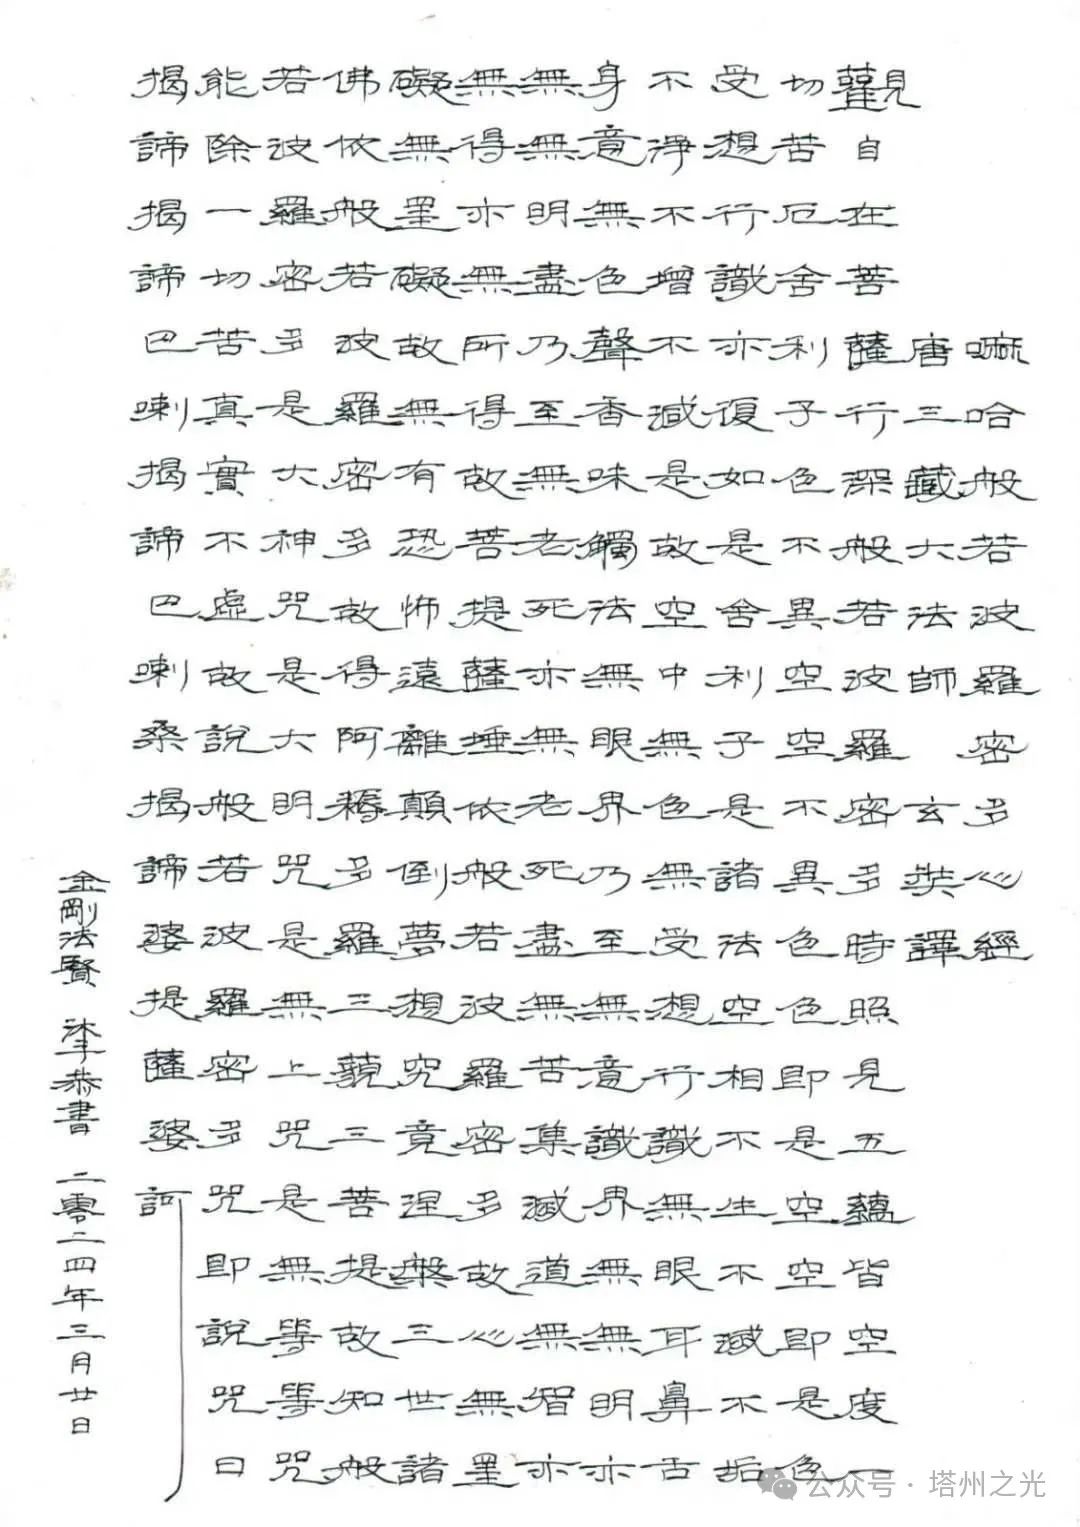 嘛哈般若波羅密多心經
唐三藏大法師 玄奘譯
觀自在菩薩行深般若波羅密多時照見五蘊皆空度一
切苦厄舍利子色不異空空不異色色即是空空即是色
受想行識亦復如是舍利子是諸法空相不生不滅不垢
不淨不增不減是故空中無色無受想行識無眼耳鼻舌
身意無色聲香味觸法無眼界乃至無意識界無無明亦
無無明盡乃至無老死亦無老死盡無苦集滅道無智亦
無得亦無所得故菩提薩埵依般若波羅密多故心無罣
礙無罣礙故無有恐怖遠離顛倒夢想究竟涅槃三世諸
佛依般若波羅密多故得阿耨多羅三藐三菩提故知般
若波羅密多是大神咒是大明咒是無上咒是無等等咒
能除一切苦真實不虛故說般若波羅密多咒即說咒曰
揭諦揭諦巴喇揭諦巴喇桑揭諦婆提薩婆訶
金剛法賢 沐手恭書 二零二四年三月廿日
公众号 · 塔州之光